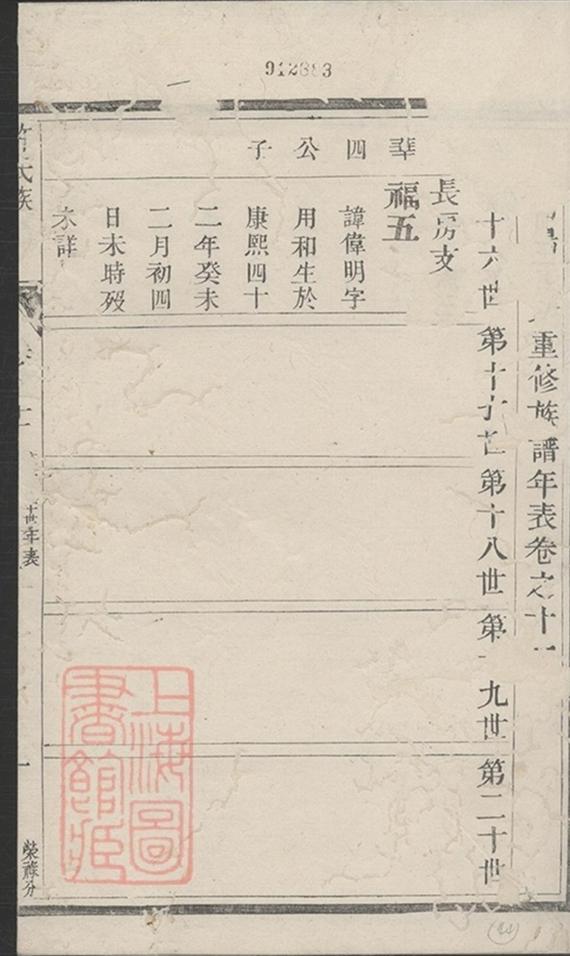 重修族譜年表卷之十
十六世 第十七世 第十八世 第十九世 第二十世
長房支
福五
四 諱偉明字
公 用和生於
子 康熙四十
二年癸未
二月初四
日未時歿
未詳
氏族
世年表
一
上海圖
書館藏